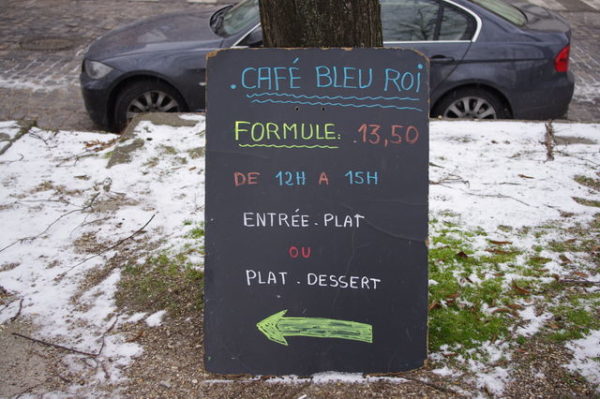 .CAFÉ BLEU ROI
FORMULE: .13,50
DE 12H A 15H
ENTRÉE.PLAT
OU
PLAT.DESSERT